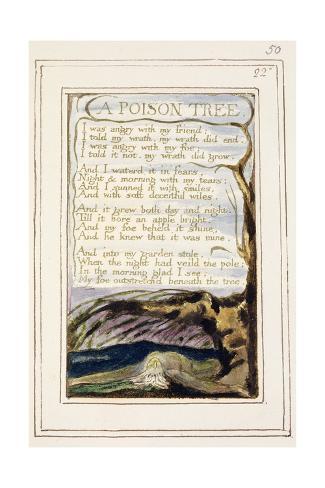 50
22
A POISON TREE.
I was angry with my friend;
I told my wrath, my wrath did end.
I was angry with my foe:
I told it not, my wrath did grow.
And I waterd it in fears,
Night & morning with my tears:
And I sunned it with smiles,
And with soft deceitful wiles.
And it grew both day and night.
Till it bore an apple bright.
And my foe beheld it shine,
And he knew that it was mine.
And into my garden stole,
When the night had veild the pole;
In the morning glad I see;
My foe outstretchd beneath the tree.